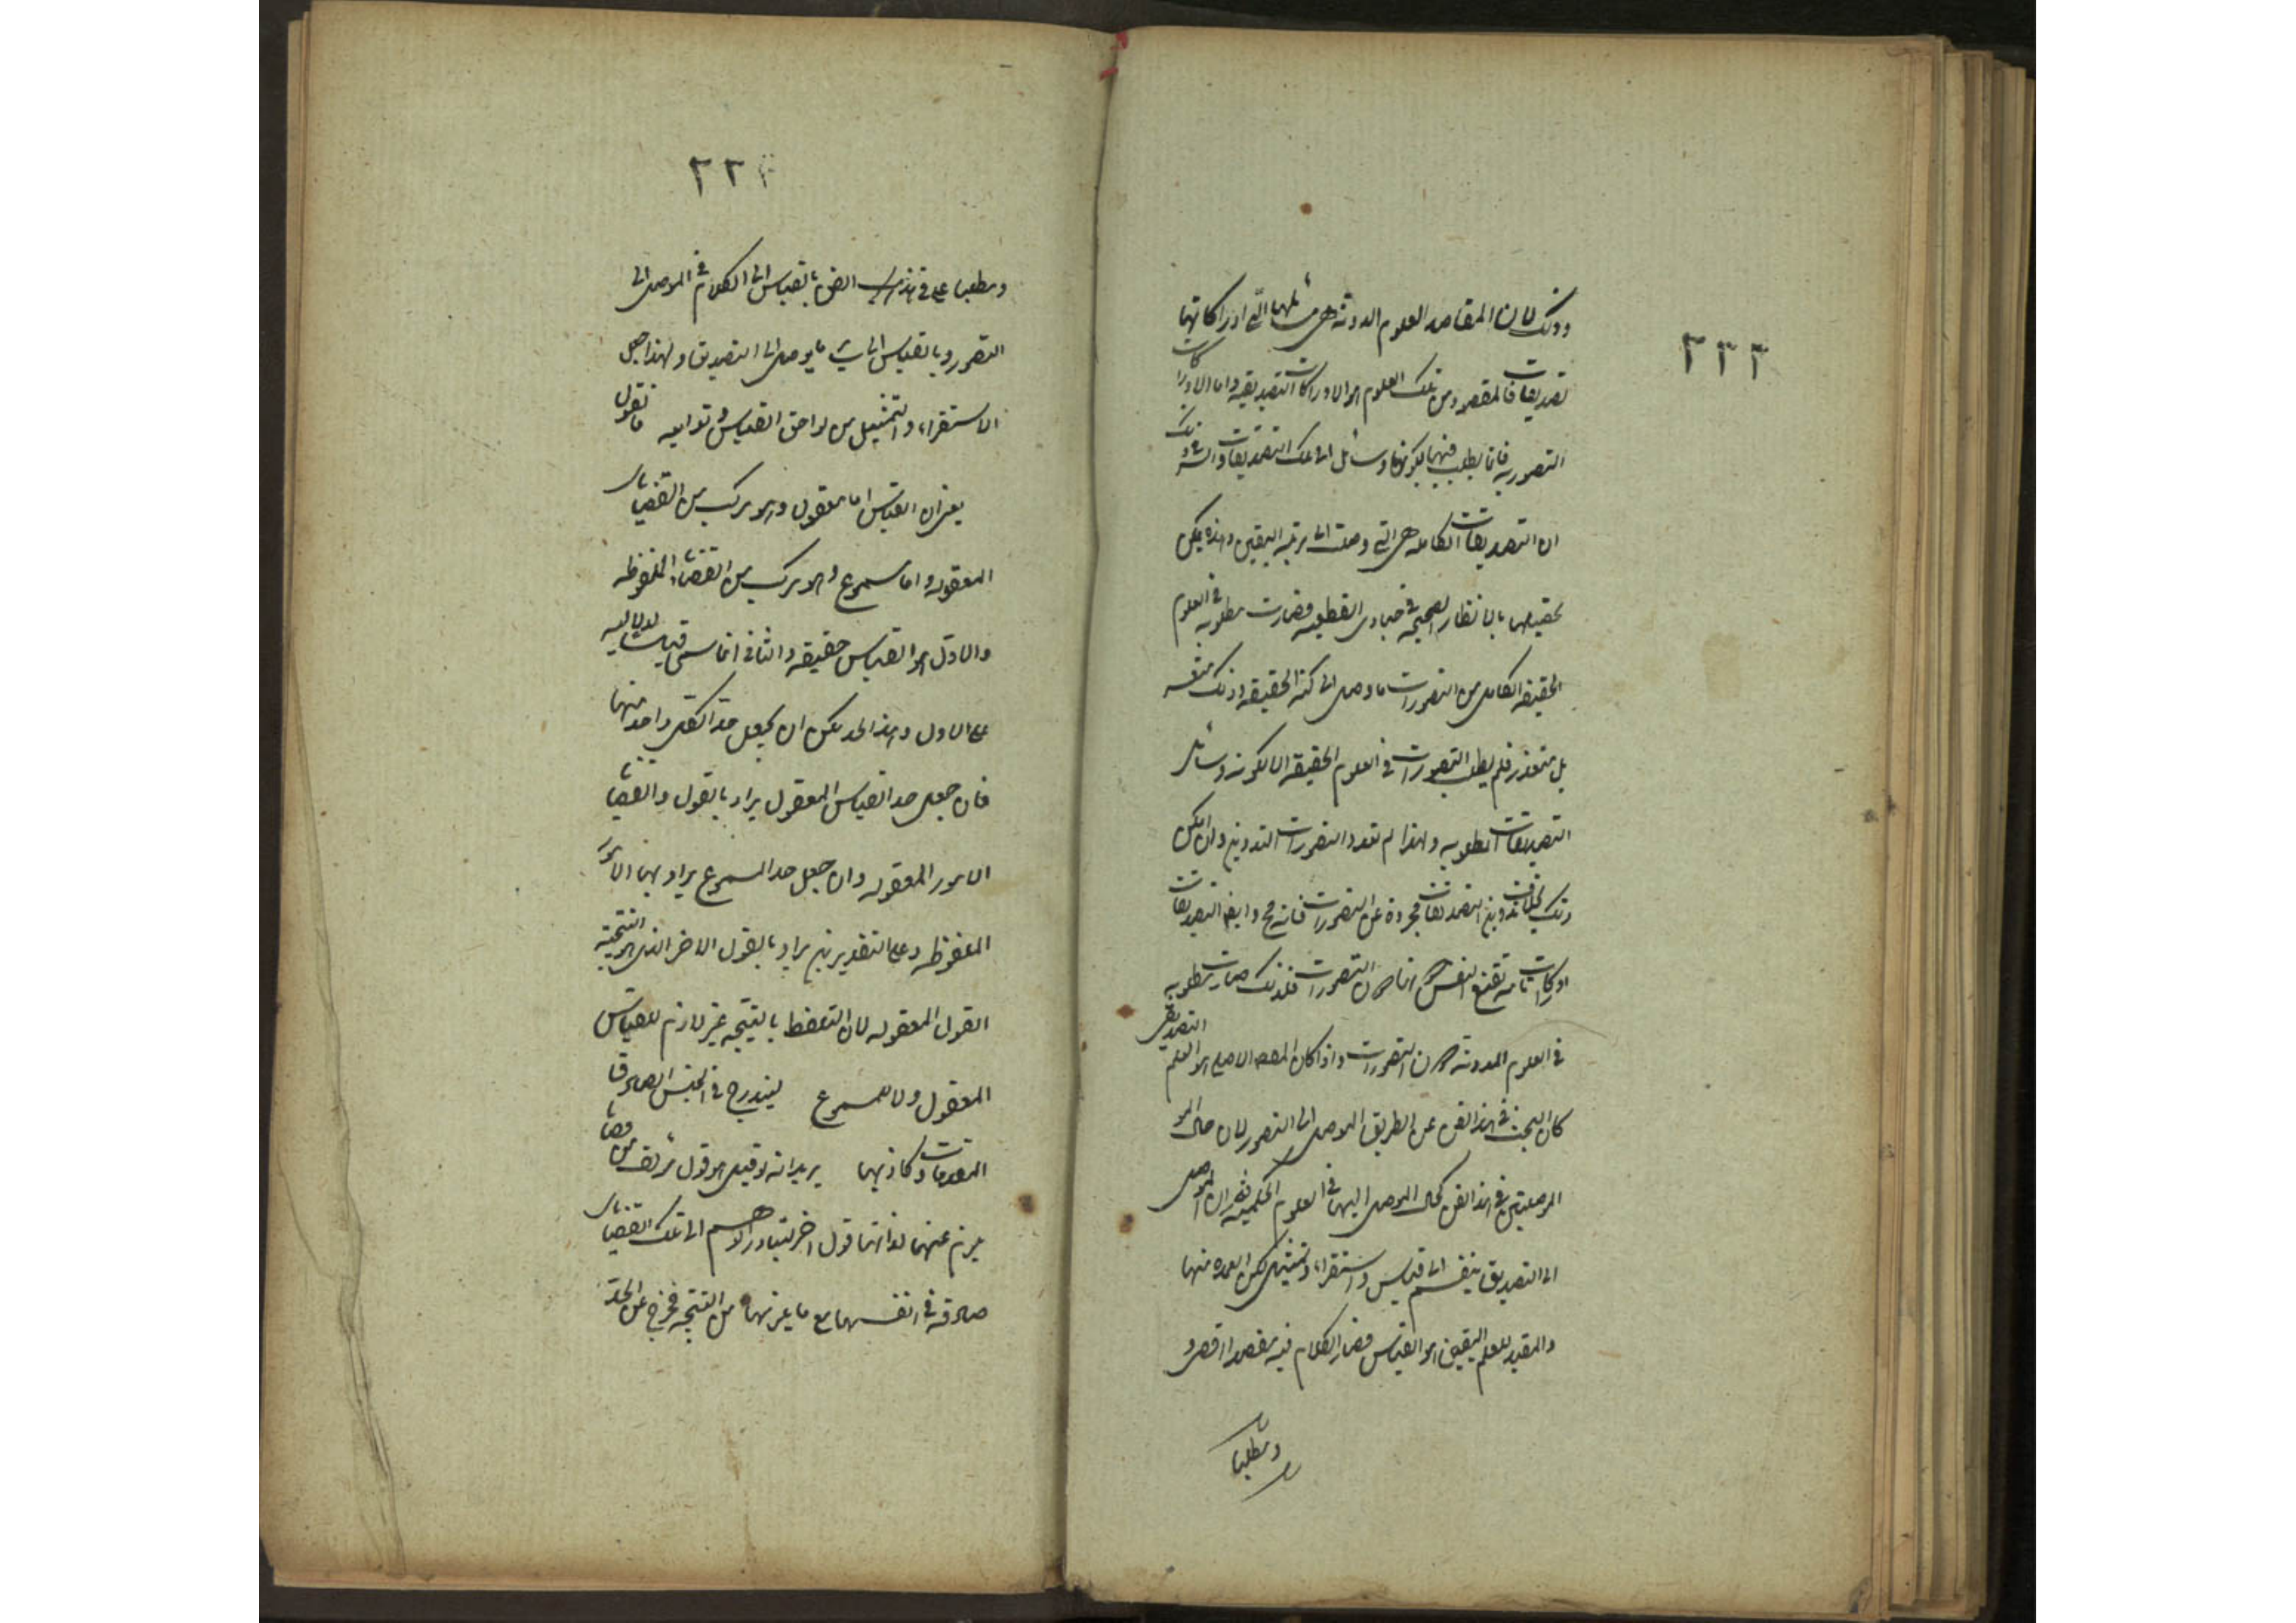 ٢٢٢
وذلك لان المقاصد العلوم المدونة هى مسائلها التى ادراكاتها
تصديقات فالمقصود من تلك العلوم هو الادراكات التصديقية واما الادراكات
التصورية فانما يطلب فيها لكونها وسائل الى تلك التصديقات والسر فى ذلك
ان التصديقات الكاملة هى التى وصلت الى مرتبة اليقين وهذه يمكن
تحصيلها بالانظار الصحيحة فى مبادى القطعية فصارت مطلوبة فى العلوم
الحقيقة الكامل من التصورات ما وصل الى كنه الحقيقة وذلك متعسر
بل متعذر فلم يطلب التصورات فى العلوم الحقيقة الا لكونه وسائل
التصديقات المطلوبة ولهذا لم تفرد التصورات التدوين وان امكن
ذلك بخلاف تدوين التصديقات مجردة عن التصورات فانه مح وايضا التصديقات
ادراكات تامة تقنع النفس بها دون التصورات فلذلك صارت مطلوبة
فى العلوم المدونة دون التصورات واذا كان المقصد الاصلى هو العلم التصديقى
كان البحث فى هذا الفن عن الطريق الموصل الى التصور لان حال
الموصلين فى هذا الفن كحال الموصل اليهما فى العلوم الحكمية ثم ان الموصل
الى التصديق ينقسم الى قياس واستقراء وتمثيل لكن العمدة منها
والمفيد للعلم اليقين هو القياس فصار الكلام فيه مقصدا اقصى و
ومطلبا
٢٢
ومطلبا على فى هذا الفن بالقياس الى الكلام فى الموصل الى
التصور وبالقياس الى سائر ما يوصل الى التصديق ولهذا جعل
الاستقراء والتمثيل من لواحق القياس وتوابعه فانقول
يعنى ان القياس اما معقول وهو مركب من القضايا
المعقولة واما مسموع وهو مركب من القضايا الملفوظة
والاول هو القياس حقيقة والثانى انما سمى قياسا لدلالته
على الاول وهذا الحد يمكن ان يجعل حدا لكل واحد منهما
فان جعل حد القياس المعقول يراد بالقول والقضايا
الامور المعقولة وان جعل حد المسموع يراد بهما الامور
الملفوظة وعلى التقديرين يراد بالقول الاخر الذى هو النتيجة
القول المعقولة لان التلفظ بالنتيجة غير لازم للقياس
المعقول ولا للمسموع ليندرج فى الجنس الصادقة
المقدمات وكاذبها يريد انه لو قيل هو قول مؤلف من قضايا
يلزم عنهما لذاتهما قول اخر لتبادر الوهم الى تلك القضايا
صادقة فى انفسهما مع ما يلزمهما من النتيجة فخرج عن الحد